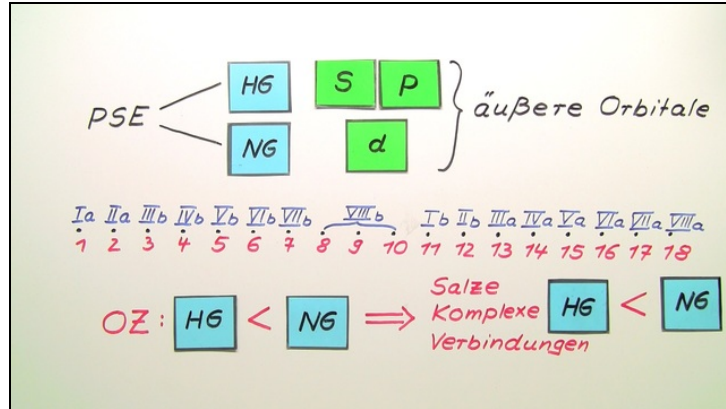 PSE
HG S P
NG d
äußere Orbitale
Ia IIa IIIb IVb Vb VIb VIIb VIIIb Ib IIb IIIa IVa Va VIa VIIa VIIIa
1 2 3 4 5 6 7 8 9 10 11 12 13 14 15 16 17 18
OZ: HG < NG ⇒
Salze
Komplexe
Verbindungen
HG < NG